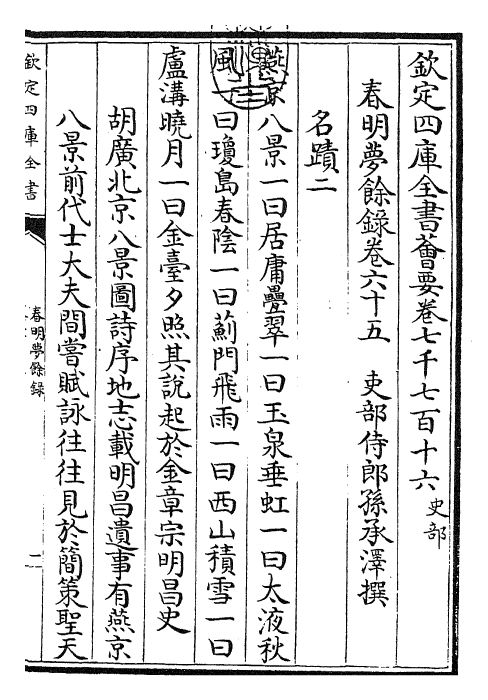 欽定四庫全書薈要卷七千七百十六 史部
春明夢餘錄卷六十五 吏部侍郎孫承澤撰
名蹟二
燕京八景一曰居庸疊翠一曰玉泉垂虹一曰太液秋
風一曰瓊島春陰一曰薊門飛雨一曰西山積雪一曰
盧溝曉月一曰金臺夕照其說起於金章宗明昌史
胡廣北京八景圖詩序地志載明昌遺事有燕京
八景前代士大夫間嘗賦詠往往見於簡策聖天
欽定四庫全書
春明夢餘錄
一